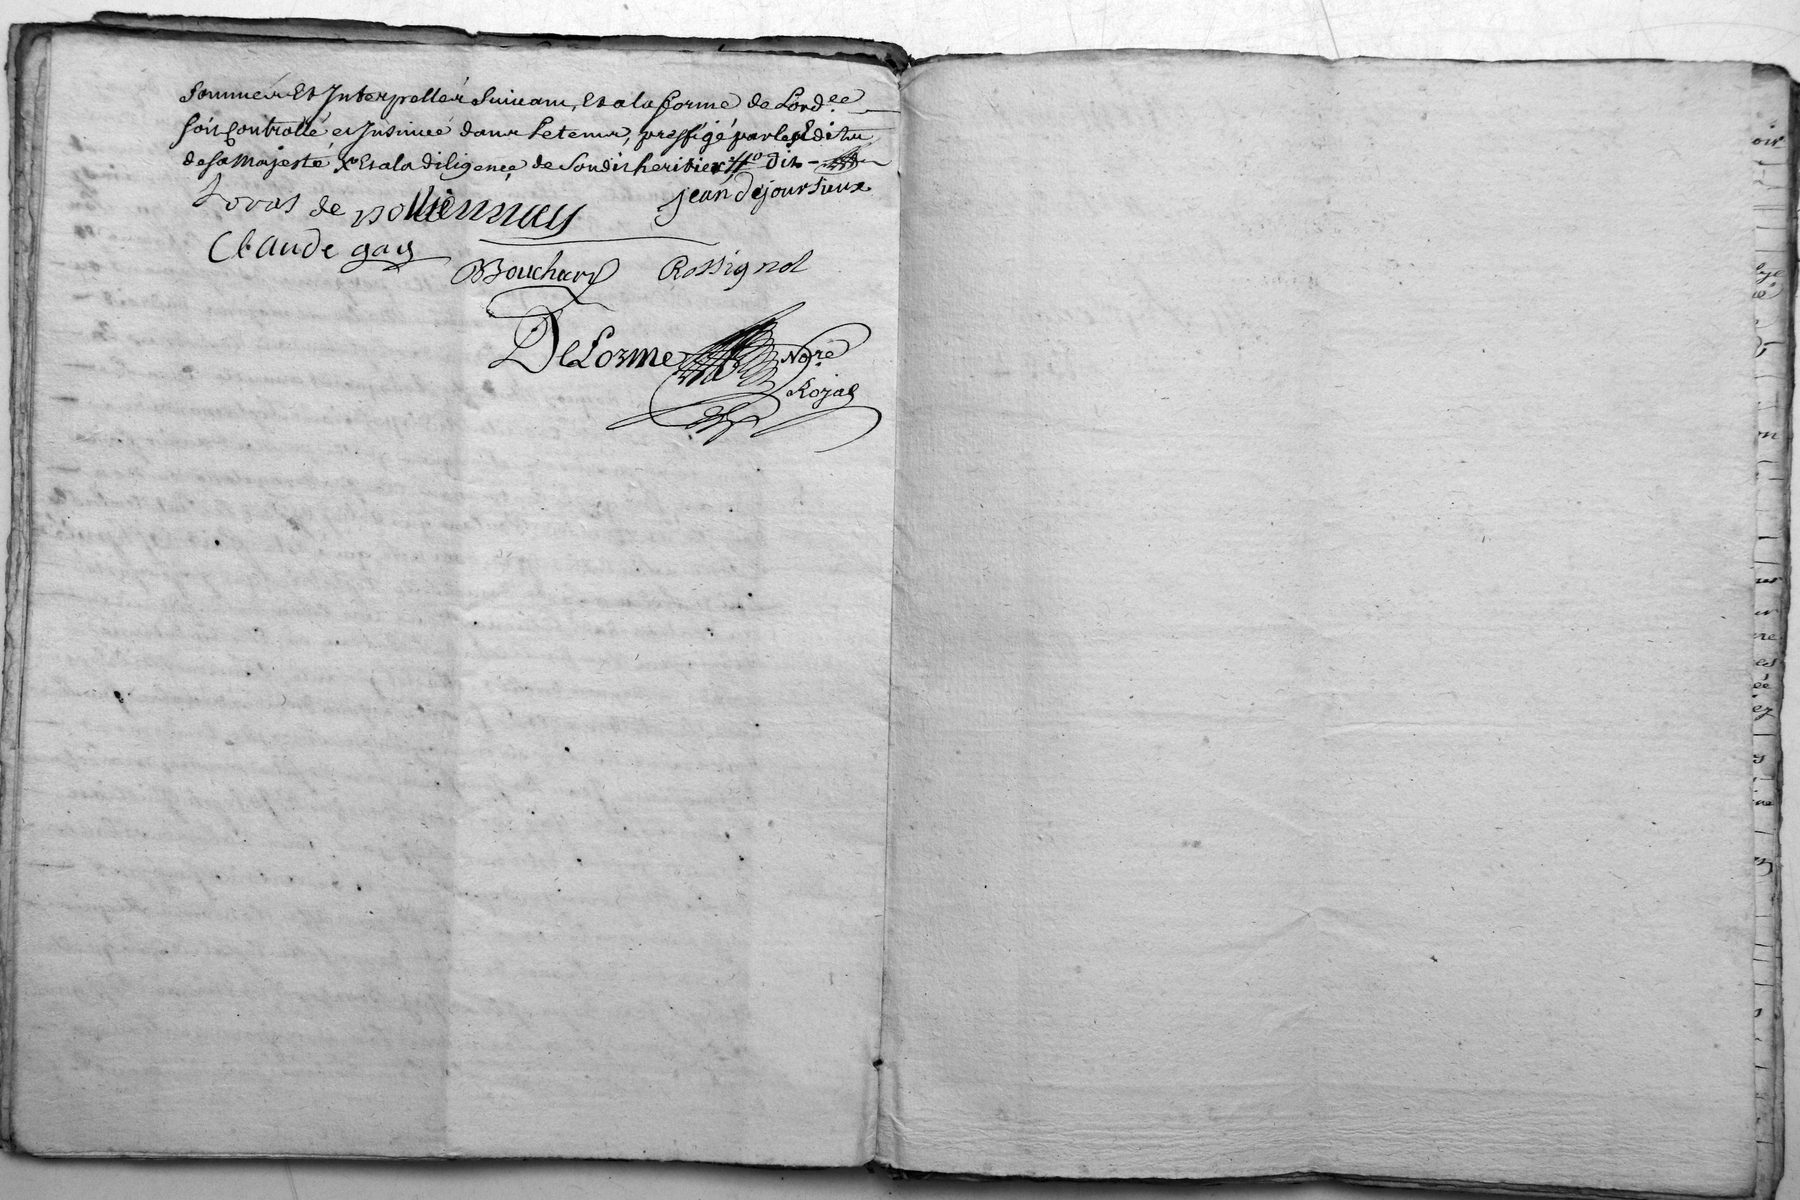 Sommés Et Interpellés Suivant, Et a la forme de Lord.ee
soit Controllé et Insinué dans Le tems, preffigé par les Edits
de sa Majesté, Et a la diligence de Sondit heritier dit
Loras de pollionnay
jean dejoursieux
Claude gay
Bouchard
Rossignol
DeLorme
No.re
Royal